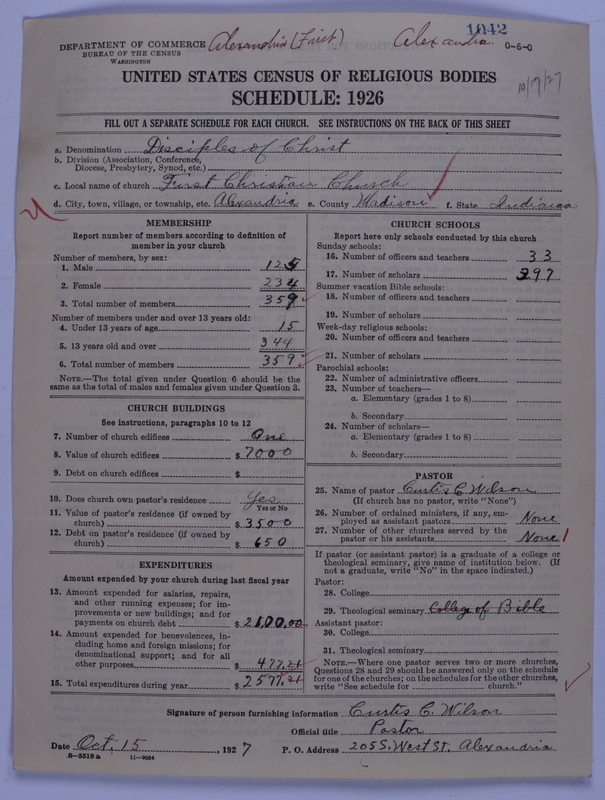 1042
DEPARTMENT OF COMMERCE
BUREAU OF THE CENSUS
WASHINGTON
Alexandria (First)
Alexandria
0-6-0
10/19/27
UNITED STATES CENSUS OF RELIGIOUS BODIES
SCHEDULE: 1926
FILL OUT A SEPARATE SCHEDULE FOR EACH CHURCH. SEE INSTRUCTIONS ON THE BACK OF THIS SHEET
a. Denomination Disciples of Christ
b. Division (Association, Conference,
Diocese, Presbytery, Synod, etc.)
c. Local name of church First Christian Church
d. City, town, village, or township, etc. Alexandria e. County Madison f. State Indiana
MEMBERSHIP
Report number of members according to definition of
member in your church
Number of members, by sex:
1. Male 125
2. Female 234
3. Total number of members 359
Number of members under and over 13 years old:
4. Under 13 years of age 15
5. 13 years old and over 344
6. Total number of members 359
NOTE.—The total given under Question 6 should be the
same as the total of males and females given under Question 3.
CHURCH BUILDINGS
See instructions, paragraphs 10 to 12
7. Number of church edifices One
8. Value of church edifices $ 7000
9. Debt on church edifices $
10. Does church own pastor's residence Yes
Yes or No
11. Value of pastor's residence (if owned by
church) $ 3500
12. Debt on pastor's residence (if owned by
church) $ 650
EXPENDITURES
Amount expended by your church during last fiscal year
13. Amount expended for salaries, repairs,
and other running expenses; for im-
provements or new buildings; and for
payments on church debt $ 2100.00
14. Amount expended for benevolences, in-
cluding home and foreign missions; for
denominational support; and for all
other purposes $ 477.21
15. Total expenditures during year $ 2577.21
CHURCH SCHOOLS
Report here only schools conducted by this church
Sunday schools:
16. Number of officers and teachers 33
17. Number of scholars 297
Summer vacation Bible schools:
18. Number of officers and teachers
19. Number of scholars
Week-day religious schools:
20. Number of officers and teachers
21. Number of scholars
Parochial schools:
22. Number of administrative officers
23. Number of teachers—
a. Elementary (grades 1 to 8)
b. Secondary
24. Number of scholars—
a. Elementary (grades 1 to 8)
b. Secondary
PASTOR
25. Name of pastor Curtis C Wilson
(If church has no pastor, write "None")
26. Number of ordained ministers, if any, em-
ployed as assistant pastors None
27. Number of other churches served by the
pastor or his assistants None 1
If pastor (or assistant pastor) is a graduate of a college or
theological seminary, give name of institution below. (If
not a graduate, write "No" in the space indicated.)
Pastor:
28. College
29. Theological seminary College of Bible
Assistant pastor:
30. College
31. Theological seminary
NOTE.—Where one pastor serves two or more churches,
Questions 28 and 29 should be answered only on the schedule
for one of the churches; on the schedules for the other churches,
write "See schedule for church."
Signature of person furnishing information Curtis C. Wilson
Official title Pastor
Date Oct. 15, 1927 P. O. Address 205 S. West St. Alexandria
8-5518a 11-9054